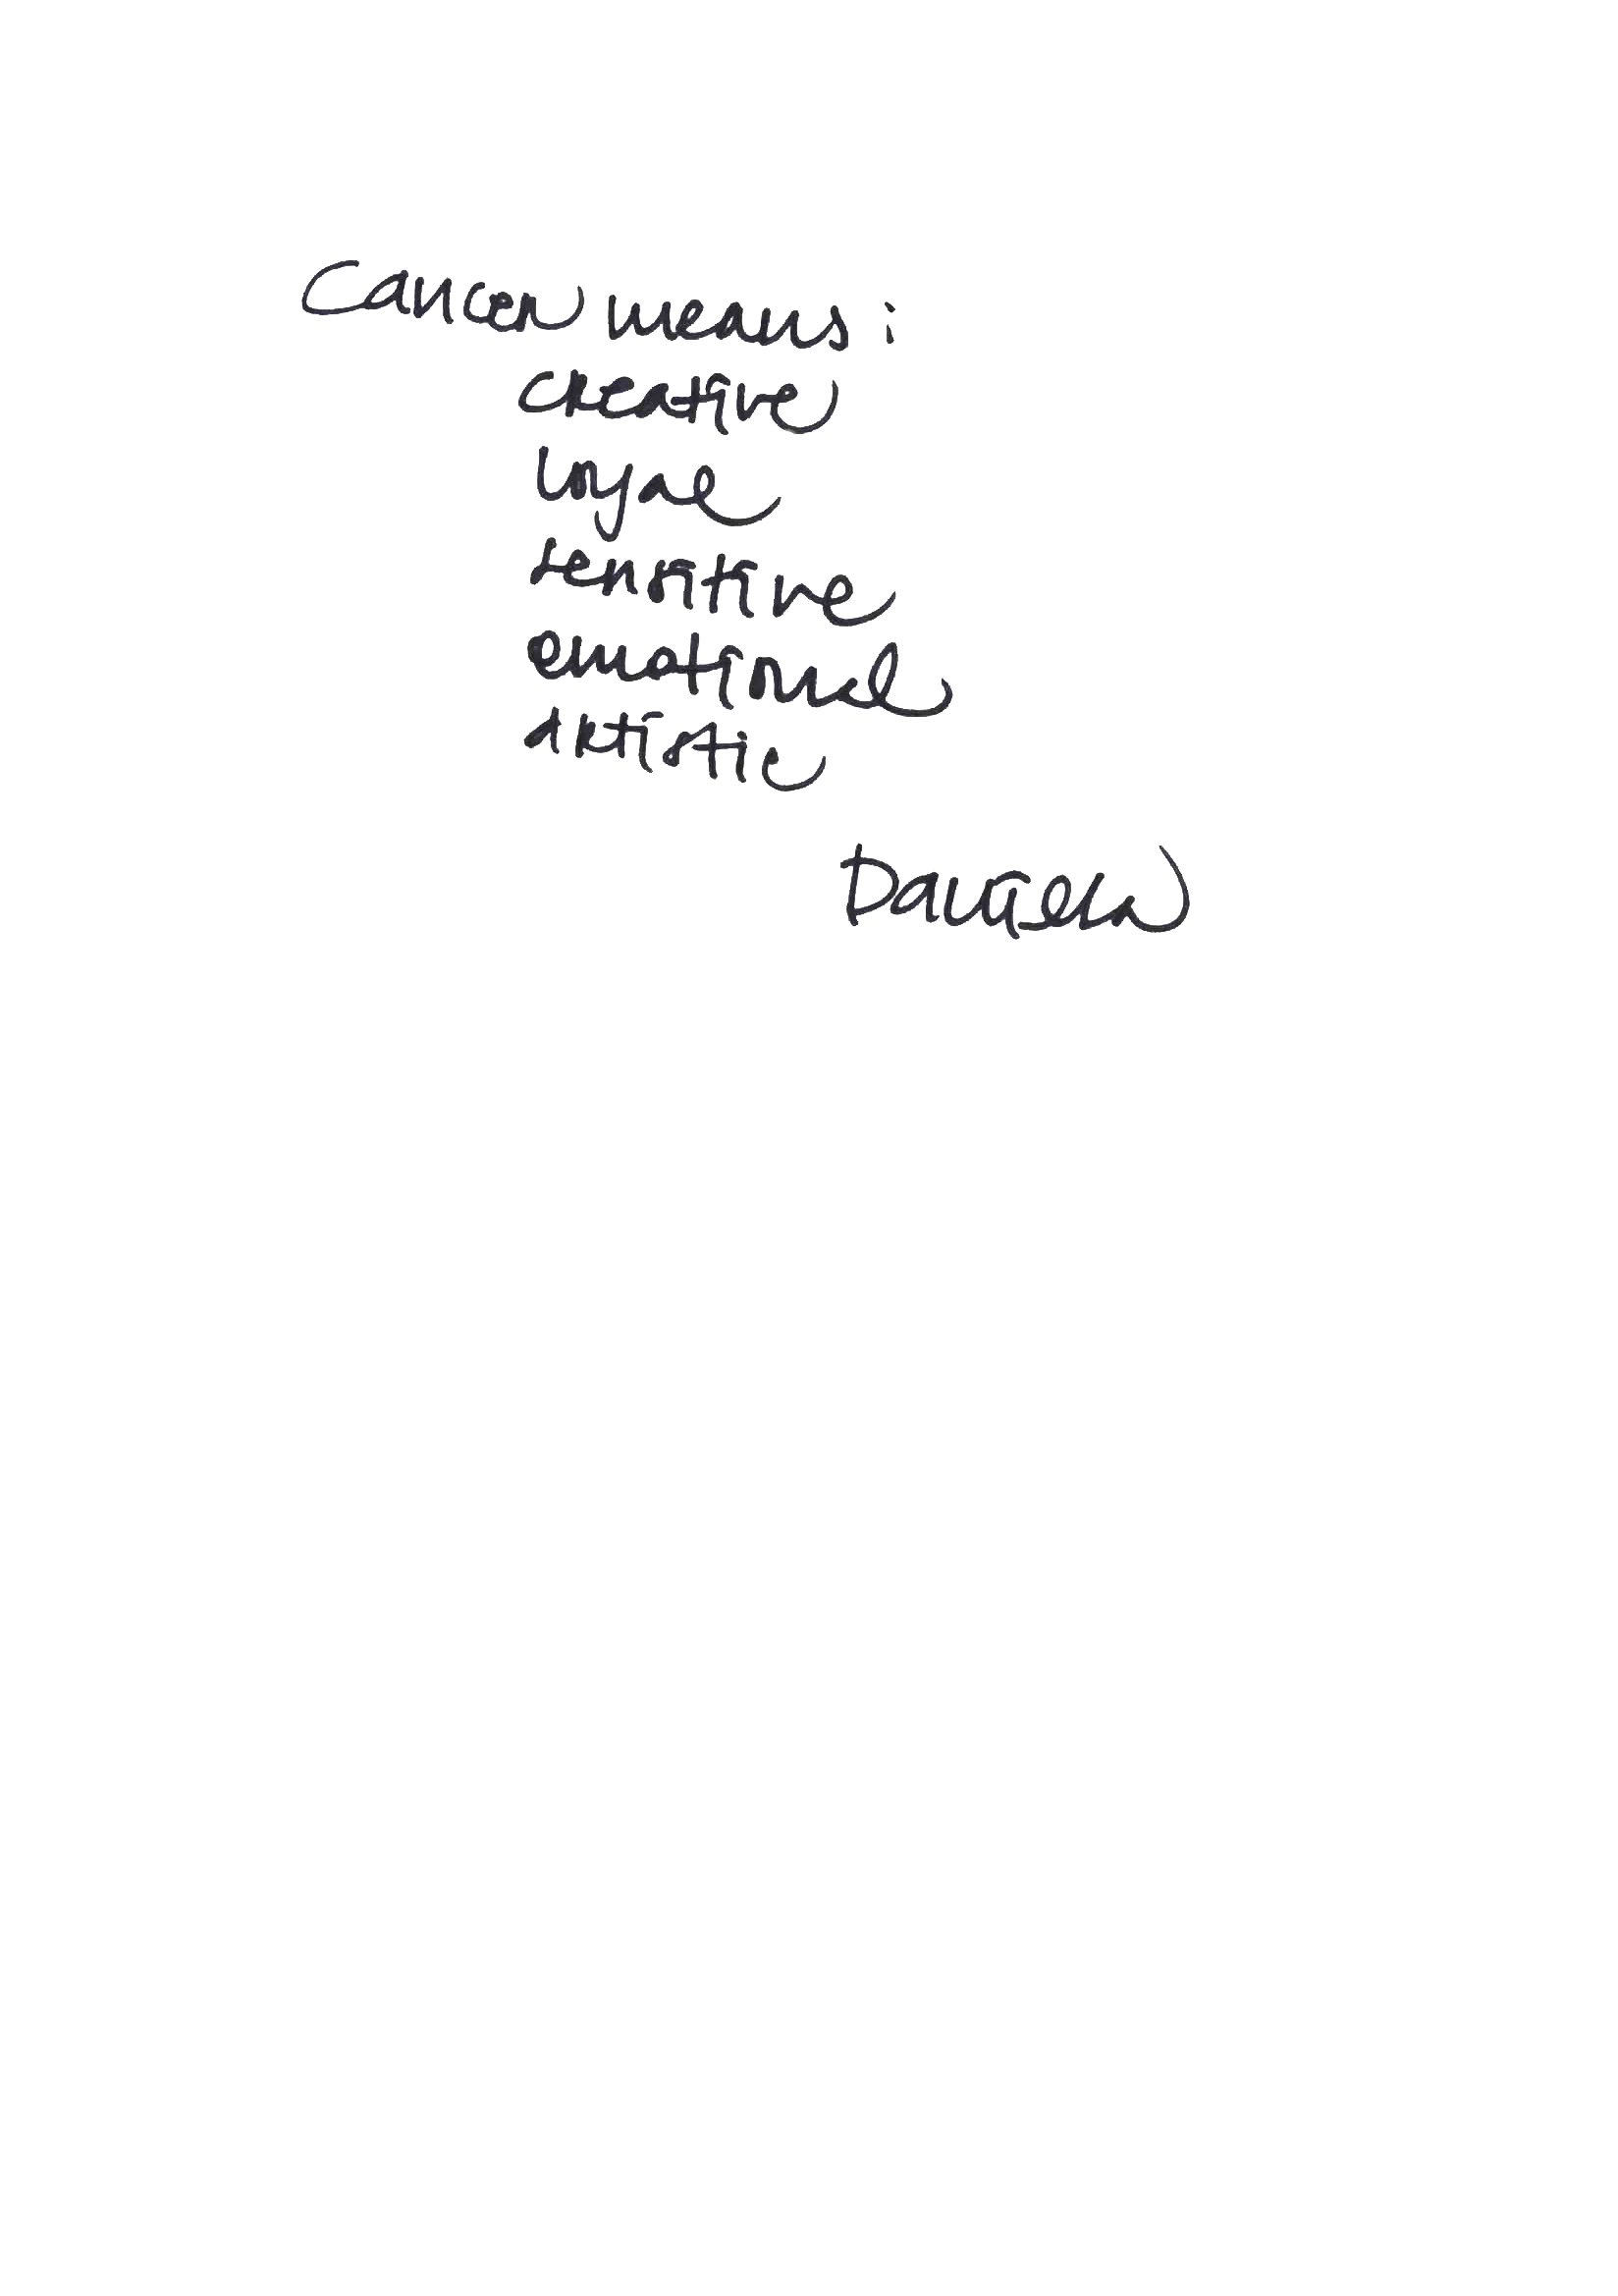 Cancer means:
creative
loyal
sensitive
emotional
artistic